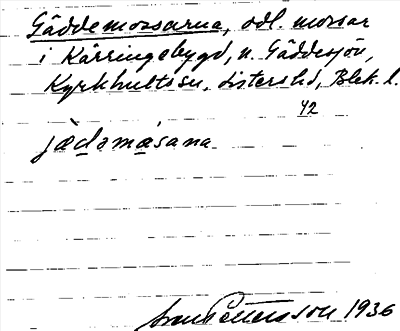 Gäddemossarna, odl. mossar
i Kärringebygd, n. Gäddesjön,
Kyrkhults sn, Listers hd, Blek. l.
42
jädamåsana
Sven Pettersson 1936